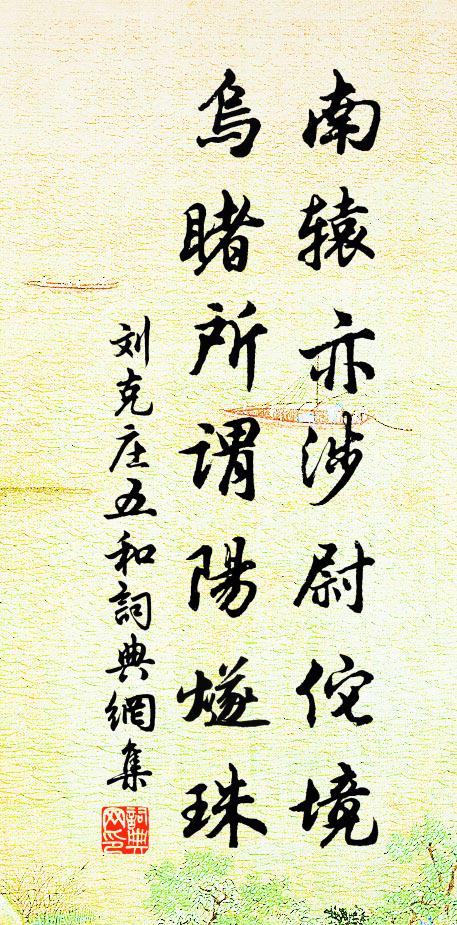 南辕亦涉尉佗境
乌睹所谓陽燧珠
刘克庄五和詞典網集
詞典網印